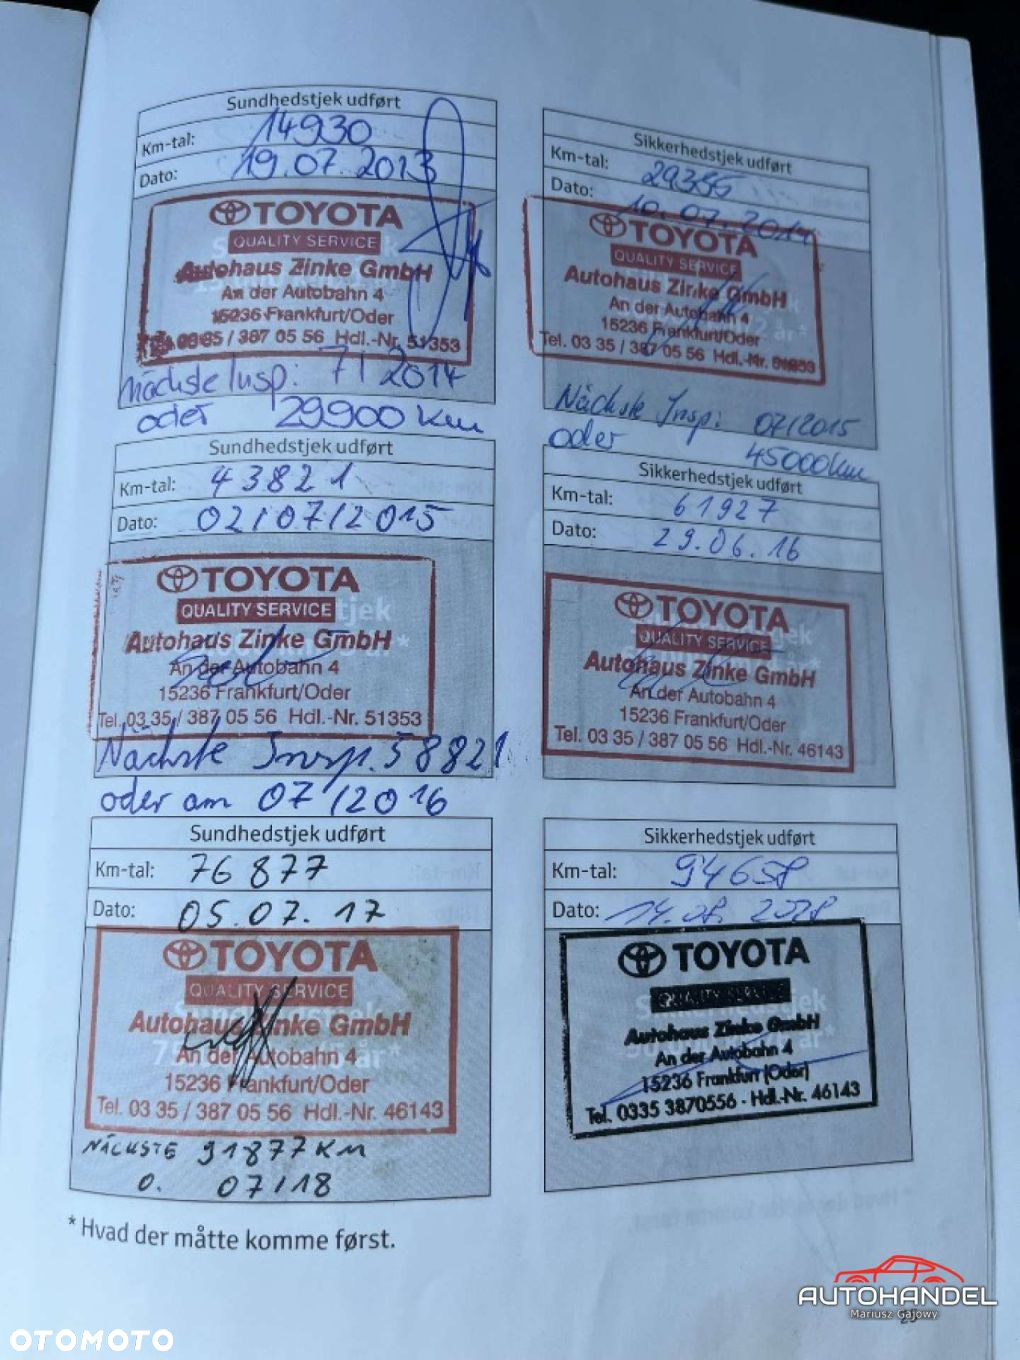 Sundhedstjek udført
Km-tal: 14930
Dato: 19.07.2013
TOYOTA
QUALITY SERVICE
Autohaus Zinke GmbH
An der Autobahn 4
15236 Frankfurt/Oder
/ 387 05 56 Hdl.-Nr. 51353
nächste Insp: 7/2014
oder 29900 km
Sikkerhedstjek udført
Km-tal: 29355
Dato: 10.07.2014
TOYOTA
QUALITY SERVICE
Autohaus Zinke GmbH
An der Autobahn 4
15236 Frankfurt/Oder
Tel. 03 35 / 387 05 56 Hdl.-Nr. 51353
Nächste Insp: 07/2015
oder 45000km
Sundhedstjek udført
Km-tal: 43821
Dato: 02/07/2015
TOYOTA
QUALITY SERVICE
Autohaus Zinke GmbH
An der Autobahn 4
15236 Frankfurt/Oder
Tel. 03 35 / 387 05 56 Hdl.-Nr. 51353
Nächste Insp. 58821
oder am 07/2016
Sikkerhedstjek udført
Km-tal: 61927
Dato: 29.06.16
TOYOTA
QUALITY SERVICE
Autohaus Zinke GmbH
An der Autobahn 4
15236 Frankfurt/Oder
Tel. 03 35 / 387 05 56 Hdl.-Nr. 46143
Sundhedstjek udført
Km-tal: 76877
Dato: 05.07.17
TOYOTA
QUALITY SERVICE
Autohaus Zinke GmbH
An der Autobahn 4
15236 Frankfurt/Oder
Tel. 03 35 / 387 05 56 Hdl.-Nr. 46143
NÄCHSTE 91877KM
O. 07/18
Sikkerhedstjek udført
Km-tal: 94658
Dato: 14.08.2018
TOYOTA
QUALITY SERVICE
Autohaus Zinke GmbH
An der Autobahn 4
15236 Frankfurt (Oder)
Tel. 0335 3870556 - Hdl.-Nr. 46143
* Hvad der måtte komme først.
AUTOHANDEL
Mariusz Gajowy
OTOMOTO